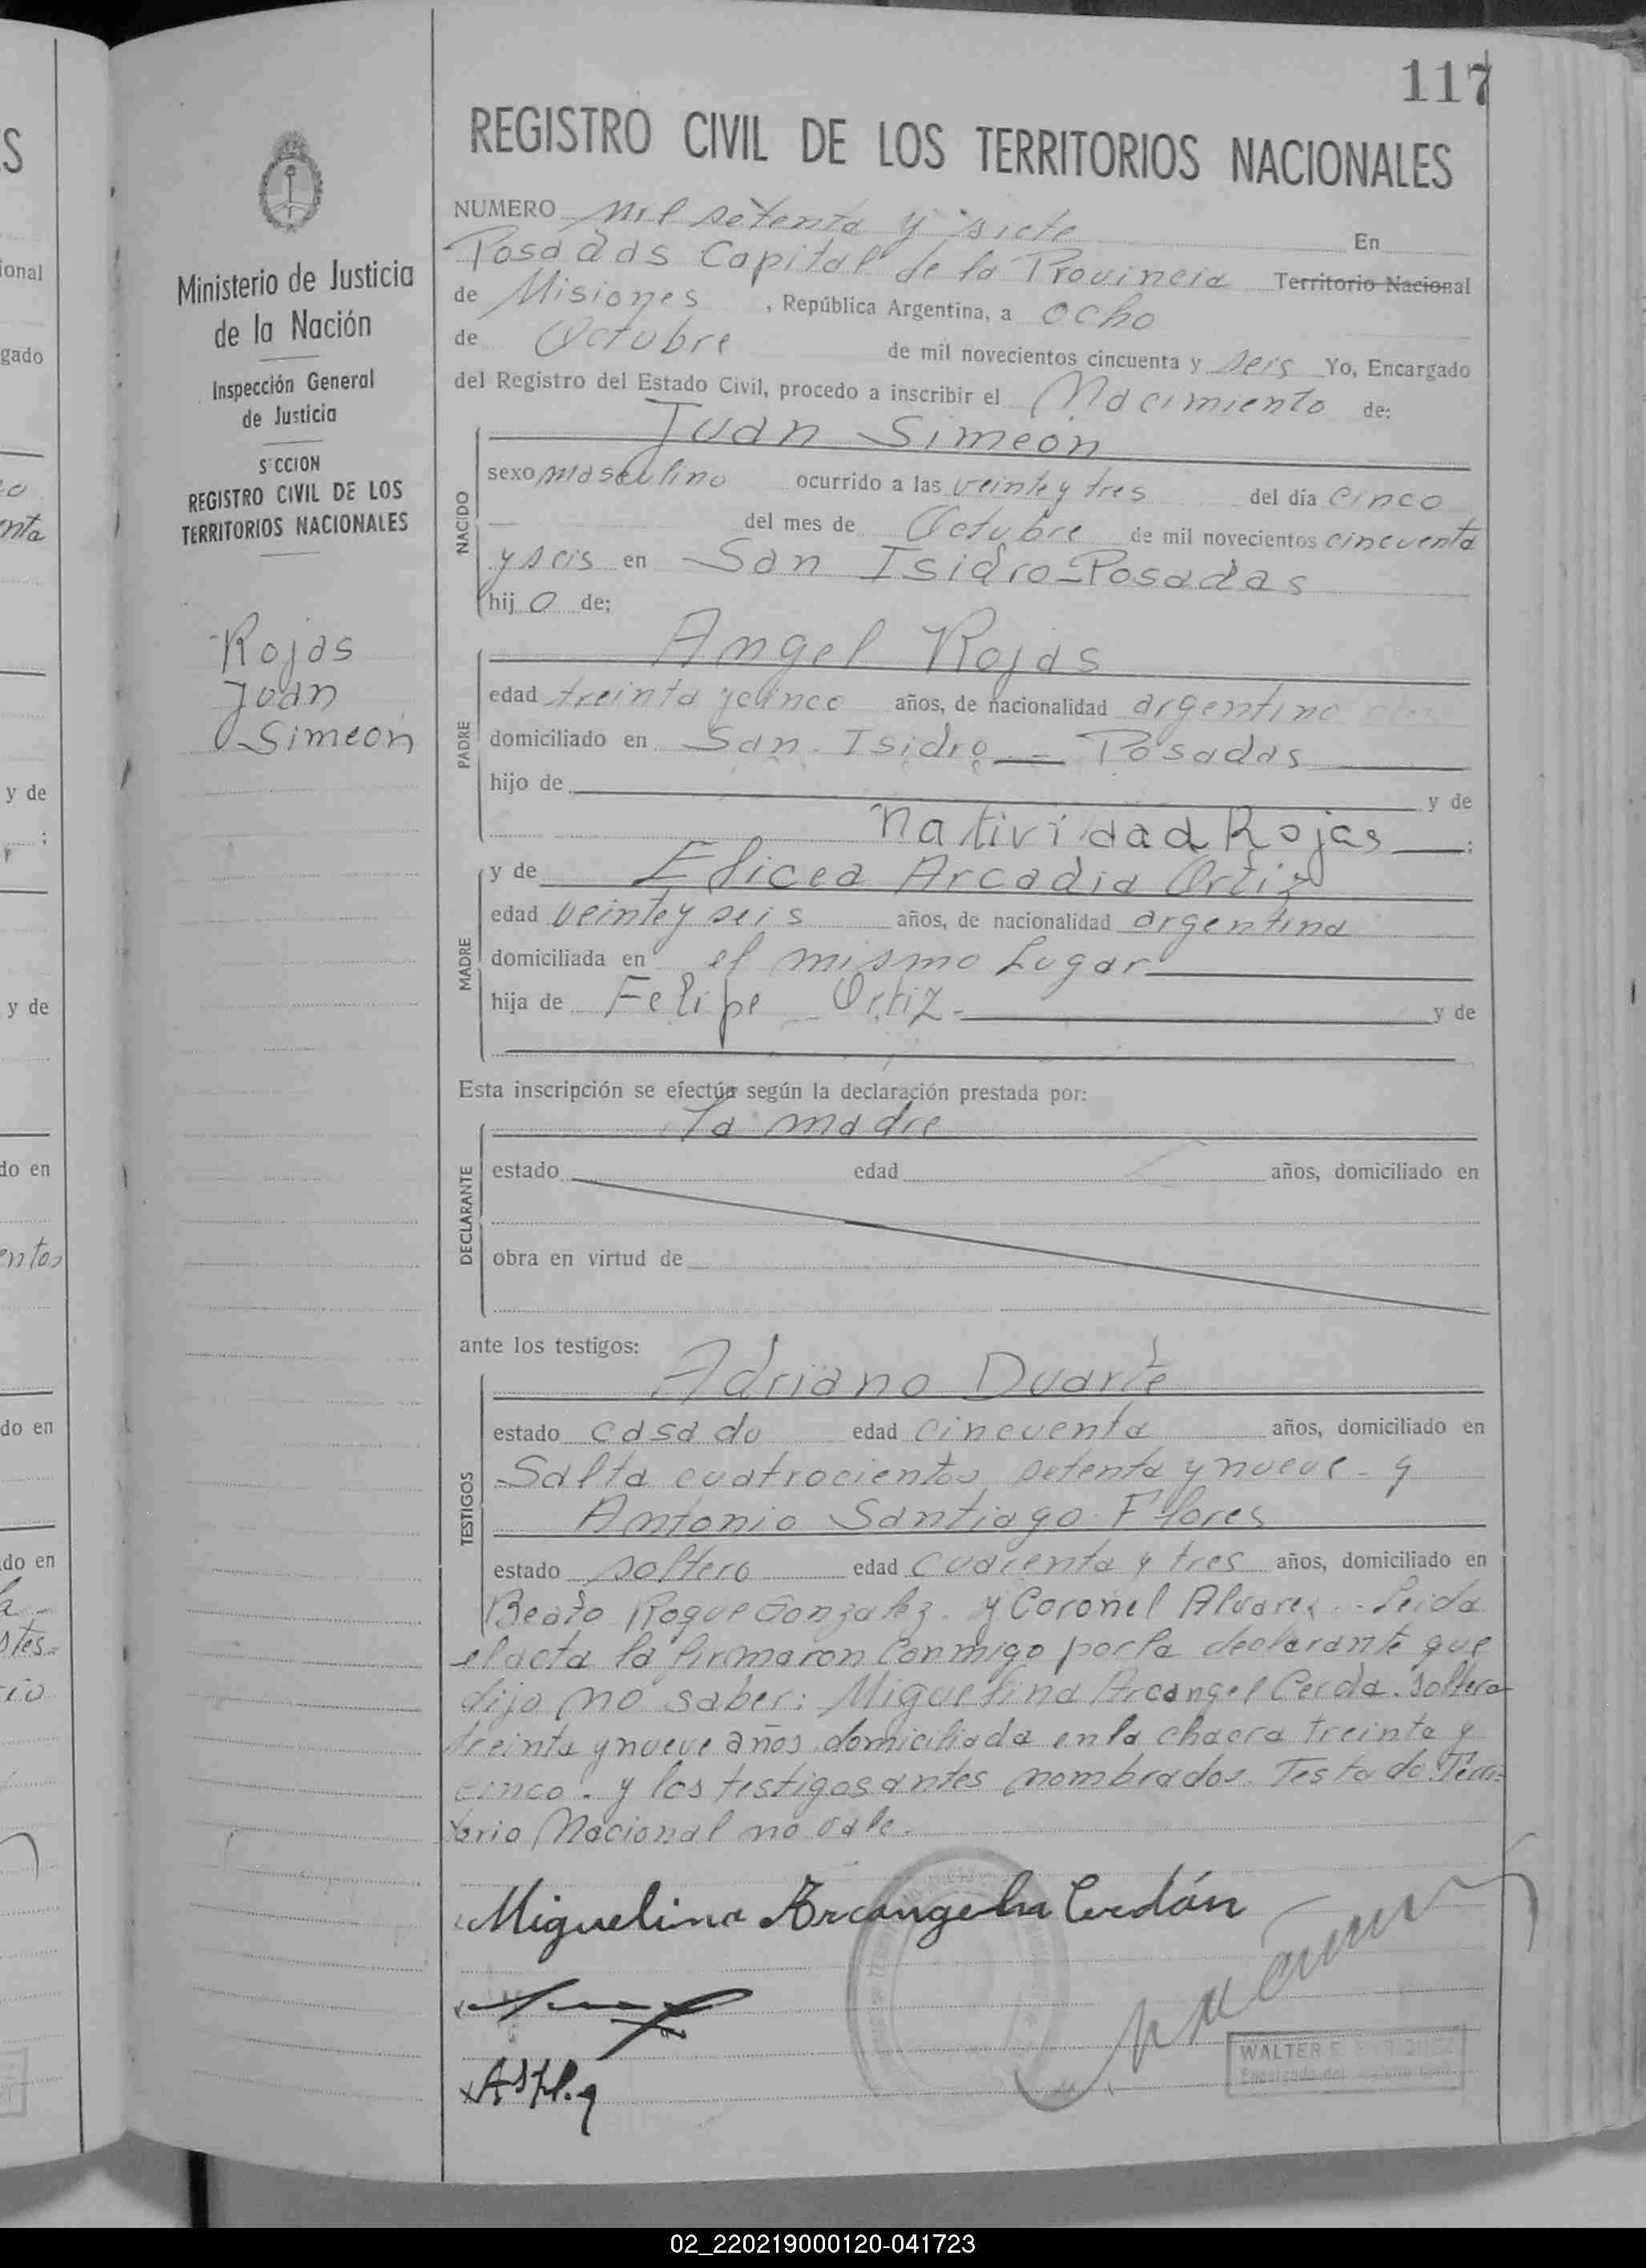 117
REGISTRO CIVIL DE LOS TERRITORIOS NACIONALES
Ministerio de Justicia
de la Nación
Inspección General
de Justicia
S CCION
REGISTRO CIVIL DE LOS
TERRITORIOS NACIONALES
Rojas
Juan
Simeón
NUMERO mil setenta y siete En
Posadas Capital de la Provincia Territorio Nacional
de Misiones , República Argentina, a ocho
de Octubre de mil novecientos cincuenta y seis Yo, Encargado
del Registro del Estado Civil, procedo a inscribir el Nacimiento de:
NACIDO
Juan Simeón
sexo masculino ocurrido a las veinte y tres del día cinco
del mes de Octubre de mil novecientos cincuenta
y seis en San Isidro-Posadas
hij o de;
PADRE
Angel Rojas
edad treinta y cinco años, de nacionalidad argentino
domiciliado en San Isidro — Posadas
hijo de y de
natividad Rojas ;
MADRE
y de Elicea Arcadia Ortiz
edad veinte y seis años, de nacionalidad argentina
domiciliada en el mismo Lugar
hija de Felipe Ortiz y de
Esta inscripción se efectúa según la declaración prestada por:
DECLARANTE
la madre
estado edad años, domiciliado en
obra en virtud de
ante los testigos:
TESTIGOS
Adriano Duarte
estado casado edad cincuenta años, domiciliado en
Salta cuatrocientos setenta y nueve - y
Antonio Santiago Flores
estado soltero edad cuarenta y tres años, domiciliado en
Beato Roque Gonzalez y Coronel Alvarez.- Leida
el acta la firmaron conmigo por la declarante que
dijo no saber: Miguelina Arcangel Cerda. soltera
treinta y nueve años domiciliada en la chacra treinta y
cinco. y los testigos antes nombrados. Testado Terri-
torio Nacional no vale.
Miguelina Arcangela Cerdán
WALTER
Encargado del
02_220219000120-041723